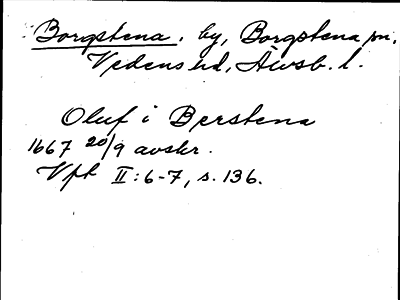 Borgstena, by, Borgstena sn,
Vedens hd, Älvsb. l.
Oluf i Berstena
1667 20/9 avskr.
Vft II: 6-7, s. 136.